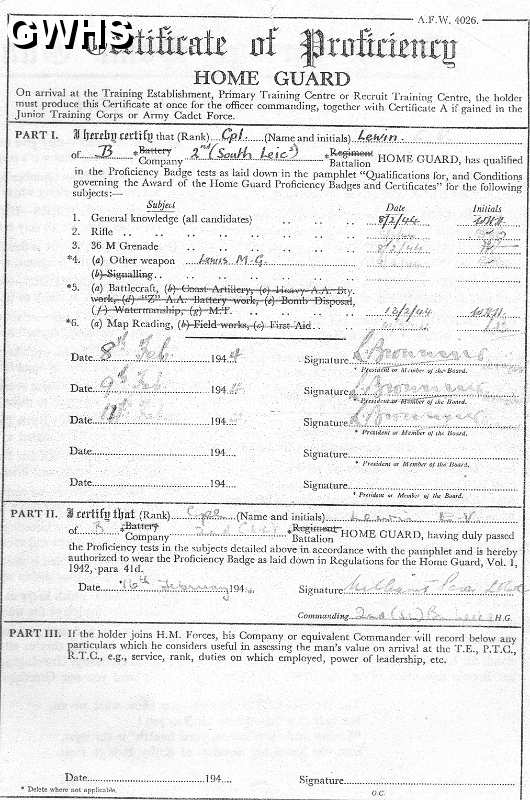 A.F.W. 4026.
GWHS
Certificate of Proficiency
HOME GUARD
On arrival at the Training Establishment, Primary Training Centre or Recruit Training Centre, the holder
must produce this Certificate at once for the officer commanding, together with Certificate A if gained in the
Junior Training Corps or Army Cadet Force.
PART I. I hereby certify that (Rank) Cpl. (Name and initials) Lewin.
of B *Battery Company 2nd (South Leics) *Regiment Battalion HOME GUARD, has qualified
in the Proficiency Badge tests as laid down in the pamphlet "Qualifications for, and Conditions
governing the Award of the Home Guard Proficiency Badges and Certificates" for the following
subjects:—
Subject Date Initials
1. General knowledge (all candidates) 8/2/44 WKH
2. Rifle
3. 36 M Grenade 8/2/44
*4. (a) Other weapon Lewis M.G.
(b) Signalling
*5. (a) Battlecraft, (b) Coast Artillery, (c) Heavy A.A. Bty.
work, (d) "Z" A.A. Battery work, (e) Bomb Disposal,
(f) Watermanship, (g) M.T. 12/2/44 WKH
*6. (a) Map Reading, (b) Field works, (c) First Aid
Date 8th Feb 1944 Signature
* President or Member of the Board.
Date 9th Feb 194 Signature
* President or Member of the Board.
Date 194 Signature
* President or Member of the Board.
Date 194 Signature
* President or Member of the Board.
Date 194 Signature
* President or Member of the Board.
PART II. I certify that (Rank) Cpl (Name and initials) Lewin
of B *Battery Company *Regiment Battalion HOME GUARD, having duly passed
the Proficiency tests in the subjects detailed above in accordance with the pamphlet and is hereby
authorized to wear the Proficiency Badge as laid down in Regulations for the Home Guard, Vol. 1,
1942, para 41d.
Date 16th February 194 Signature
Commanding 2nd H.G.
PART III. If the holder joins H.M. Forces, his Company or equivalent Commander will record below any
particulars which he considers useful in assessing the man's value on arrival at the T.E., P.T.C.,
R.T.C., e.g., service, rank, duties on which employed, power of leadership, etc.
Date 194 Signature
* Delete where not applicable. O.C.